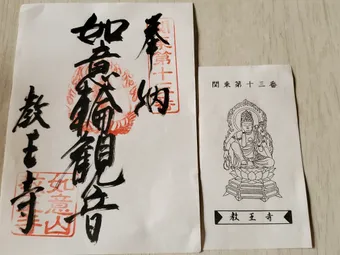 奉納
関東第十三番
如意輪観音
教王寺
如意山
関東第十三番
教王寺